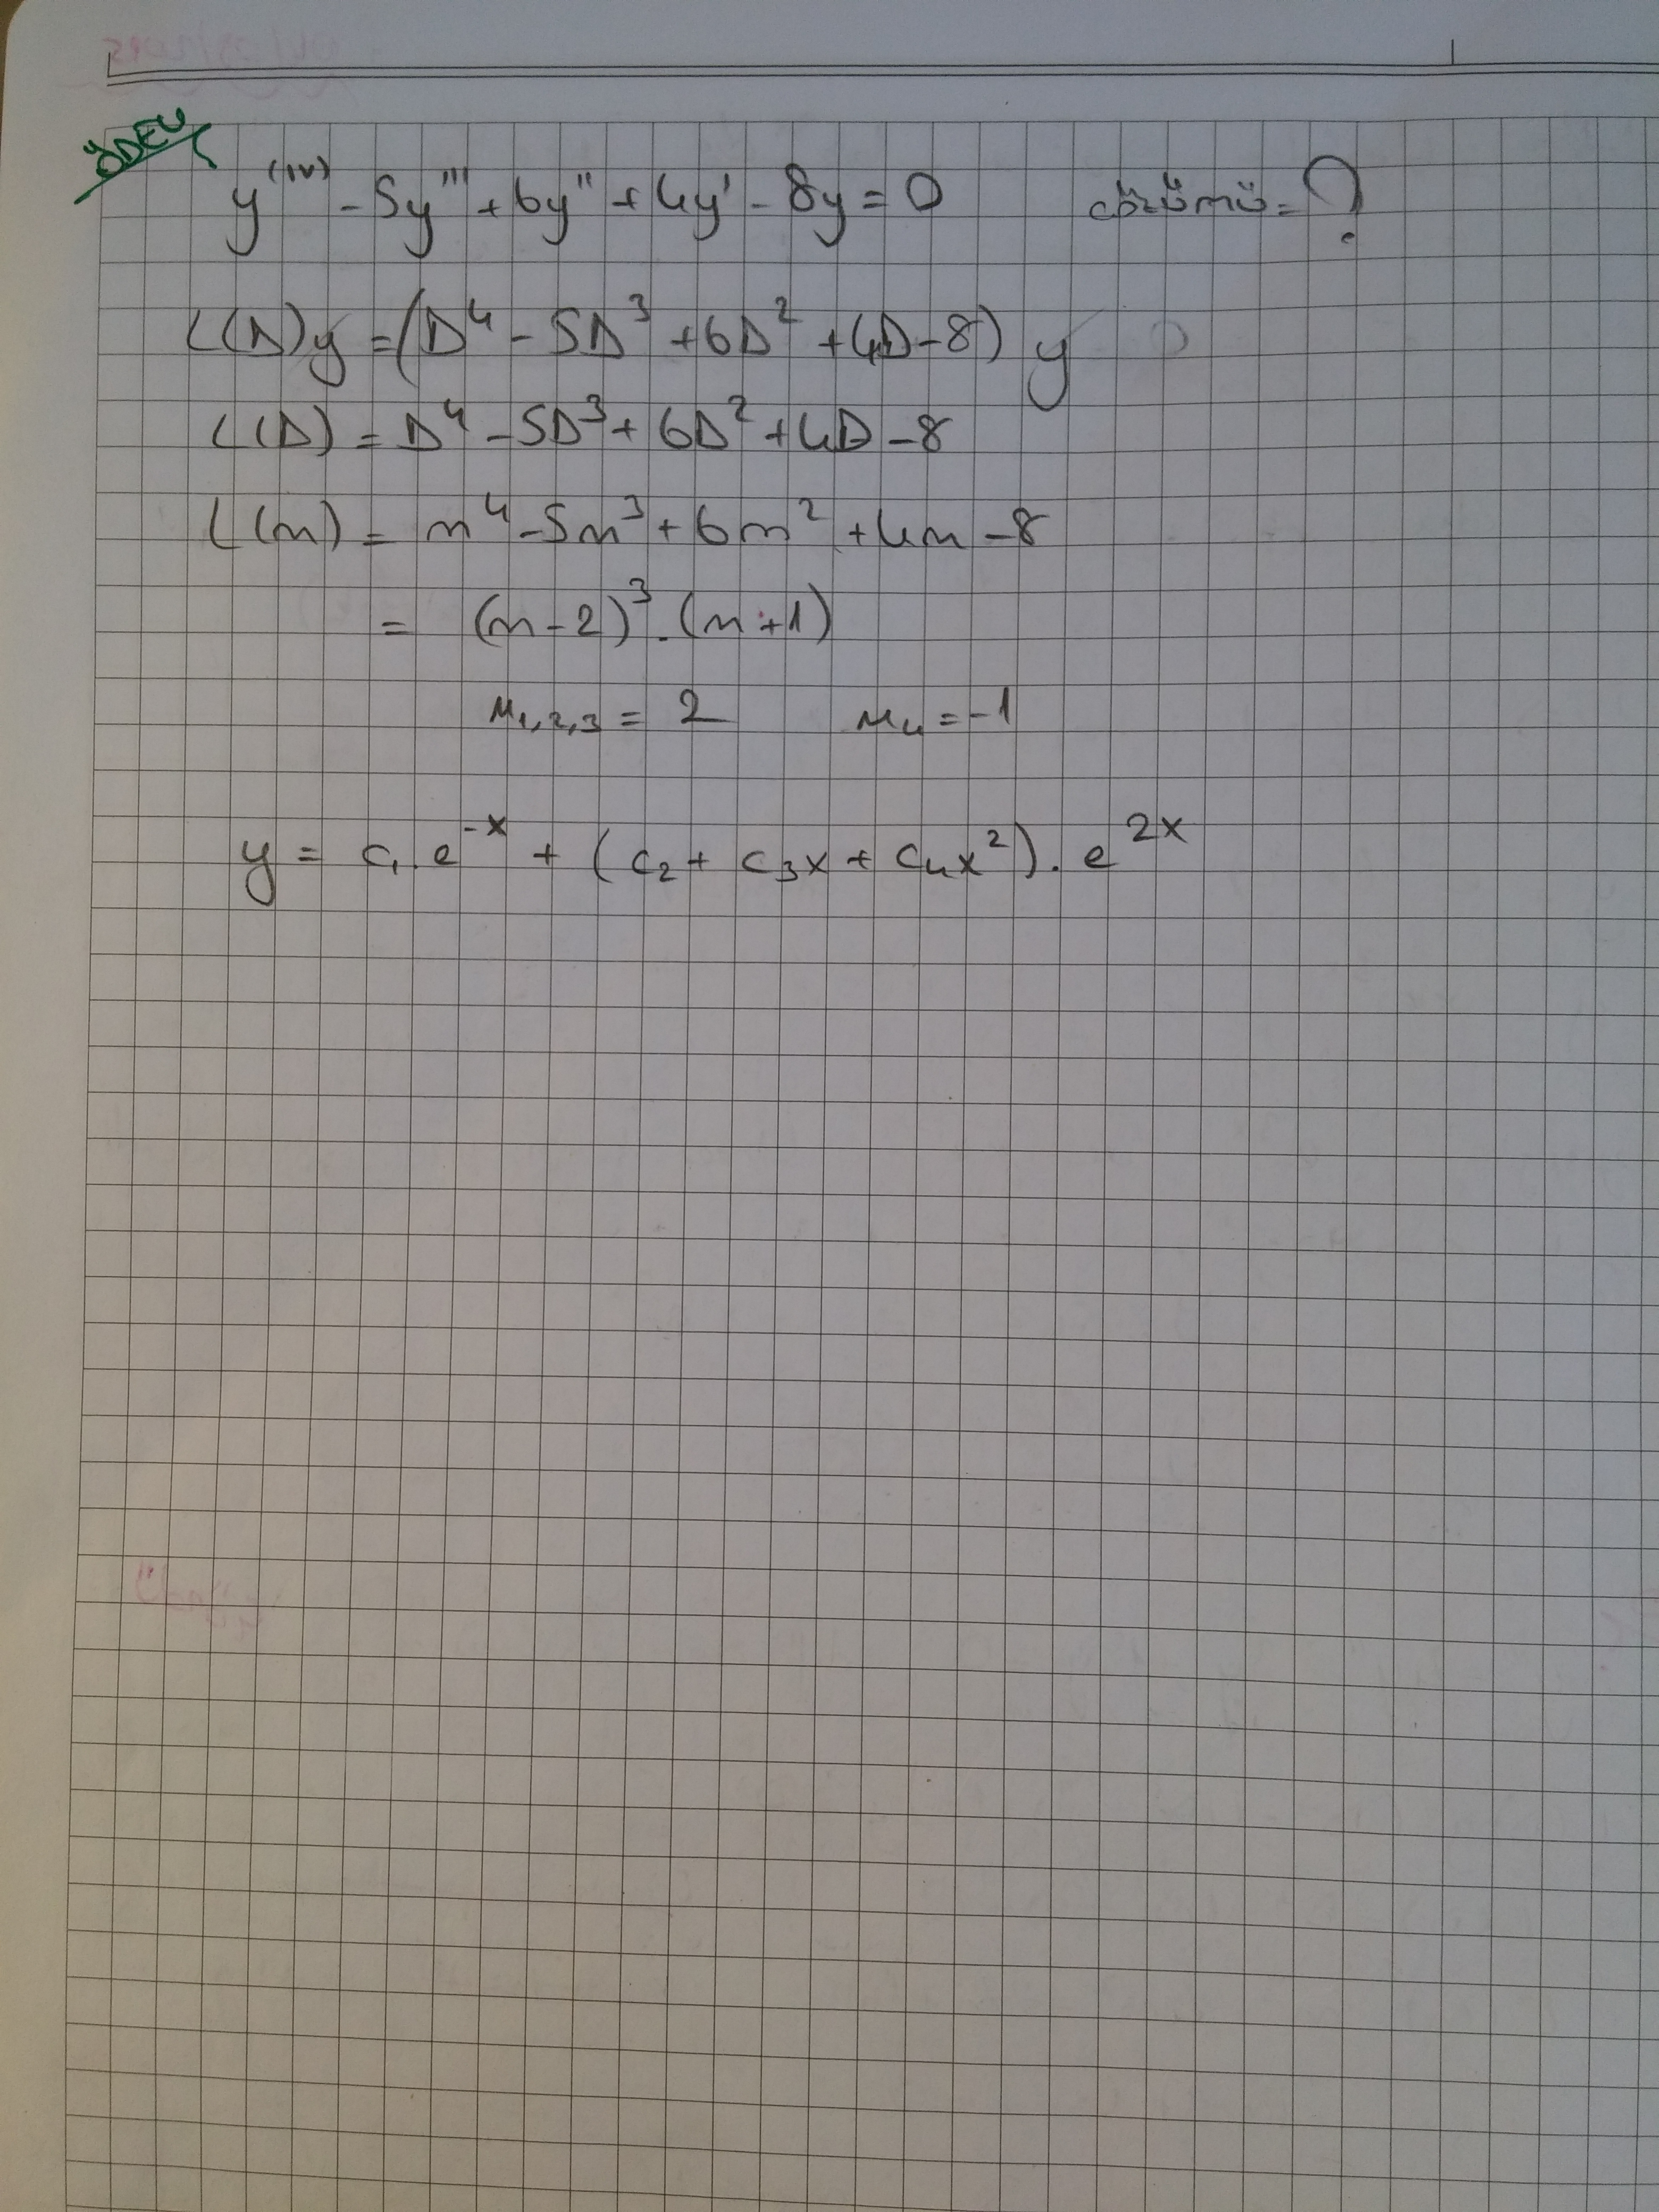 ÖDEV
y⁽ⁱᵛ⁾ - 5y''' + 6y'' + 4y' - 8y = 0 çözümü = ?
L(D)y = (D⁴ - 5D³ + 6D² + 4D - 8) y
L(D) = D⁴ - 5D³ + 6D² + 4D - 8
L(m) = m⁴ - 5m³ + 6m² + 4m - 8
= (m - 2)³ . (m + 1)
m₁,₂,₃ = 2 m₄ = -1
y = c₁ . e⁻ˣ + (c₂ + c₃x + c₄x²) . e²ˣ